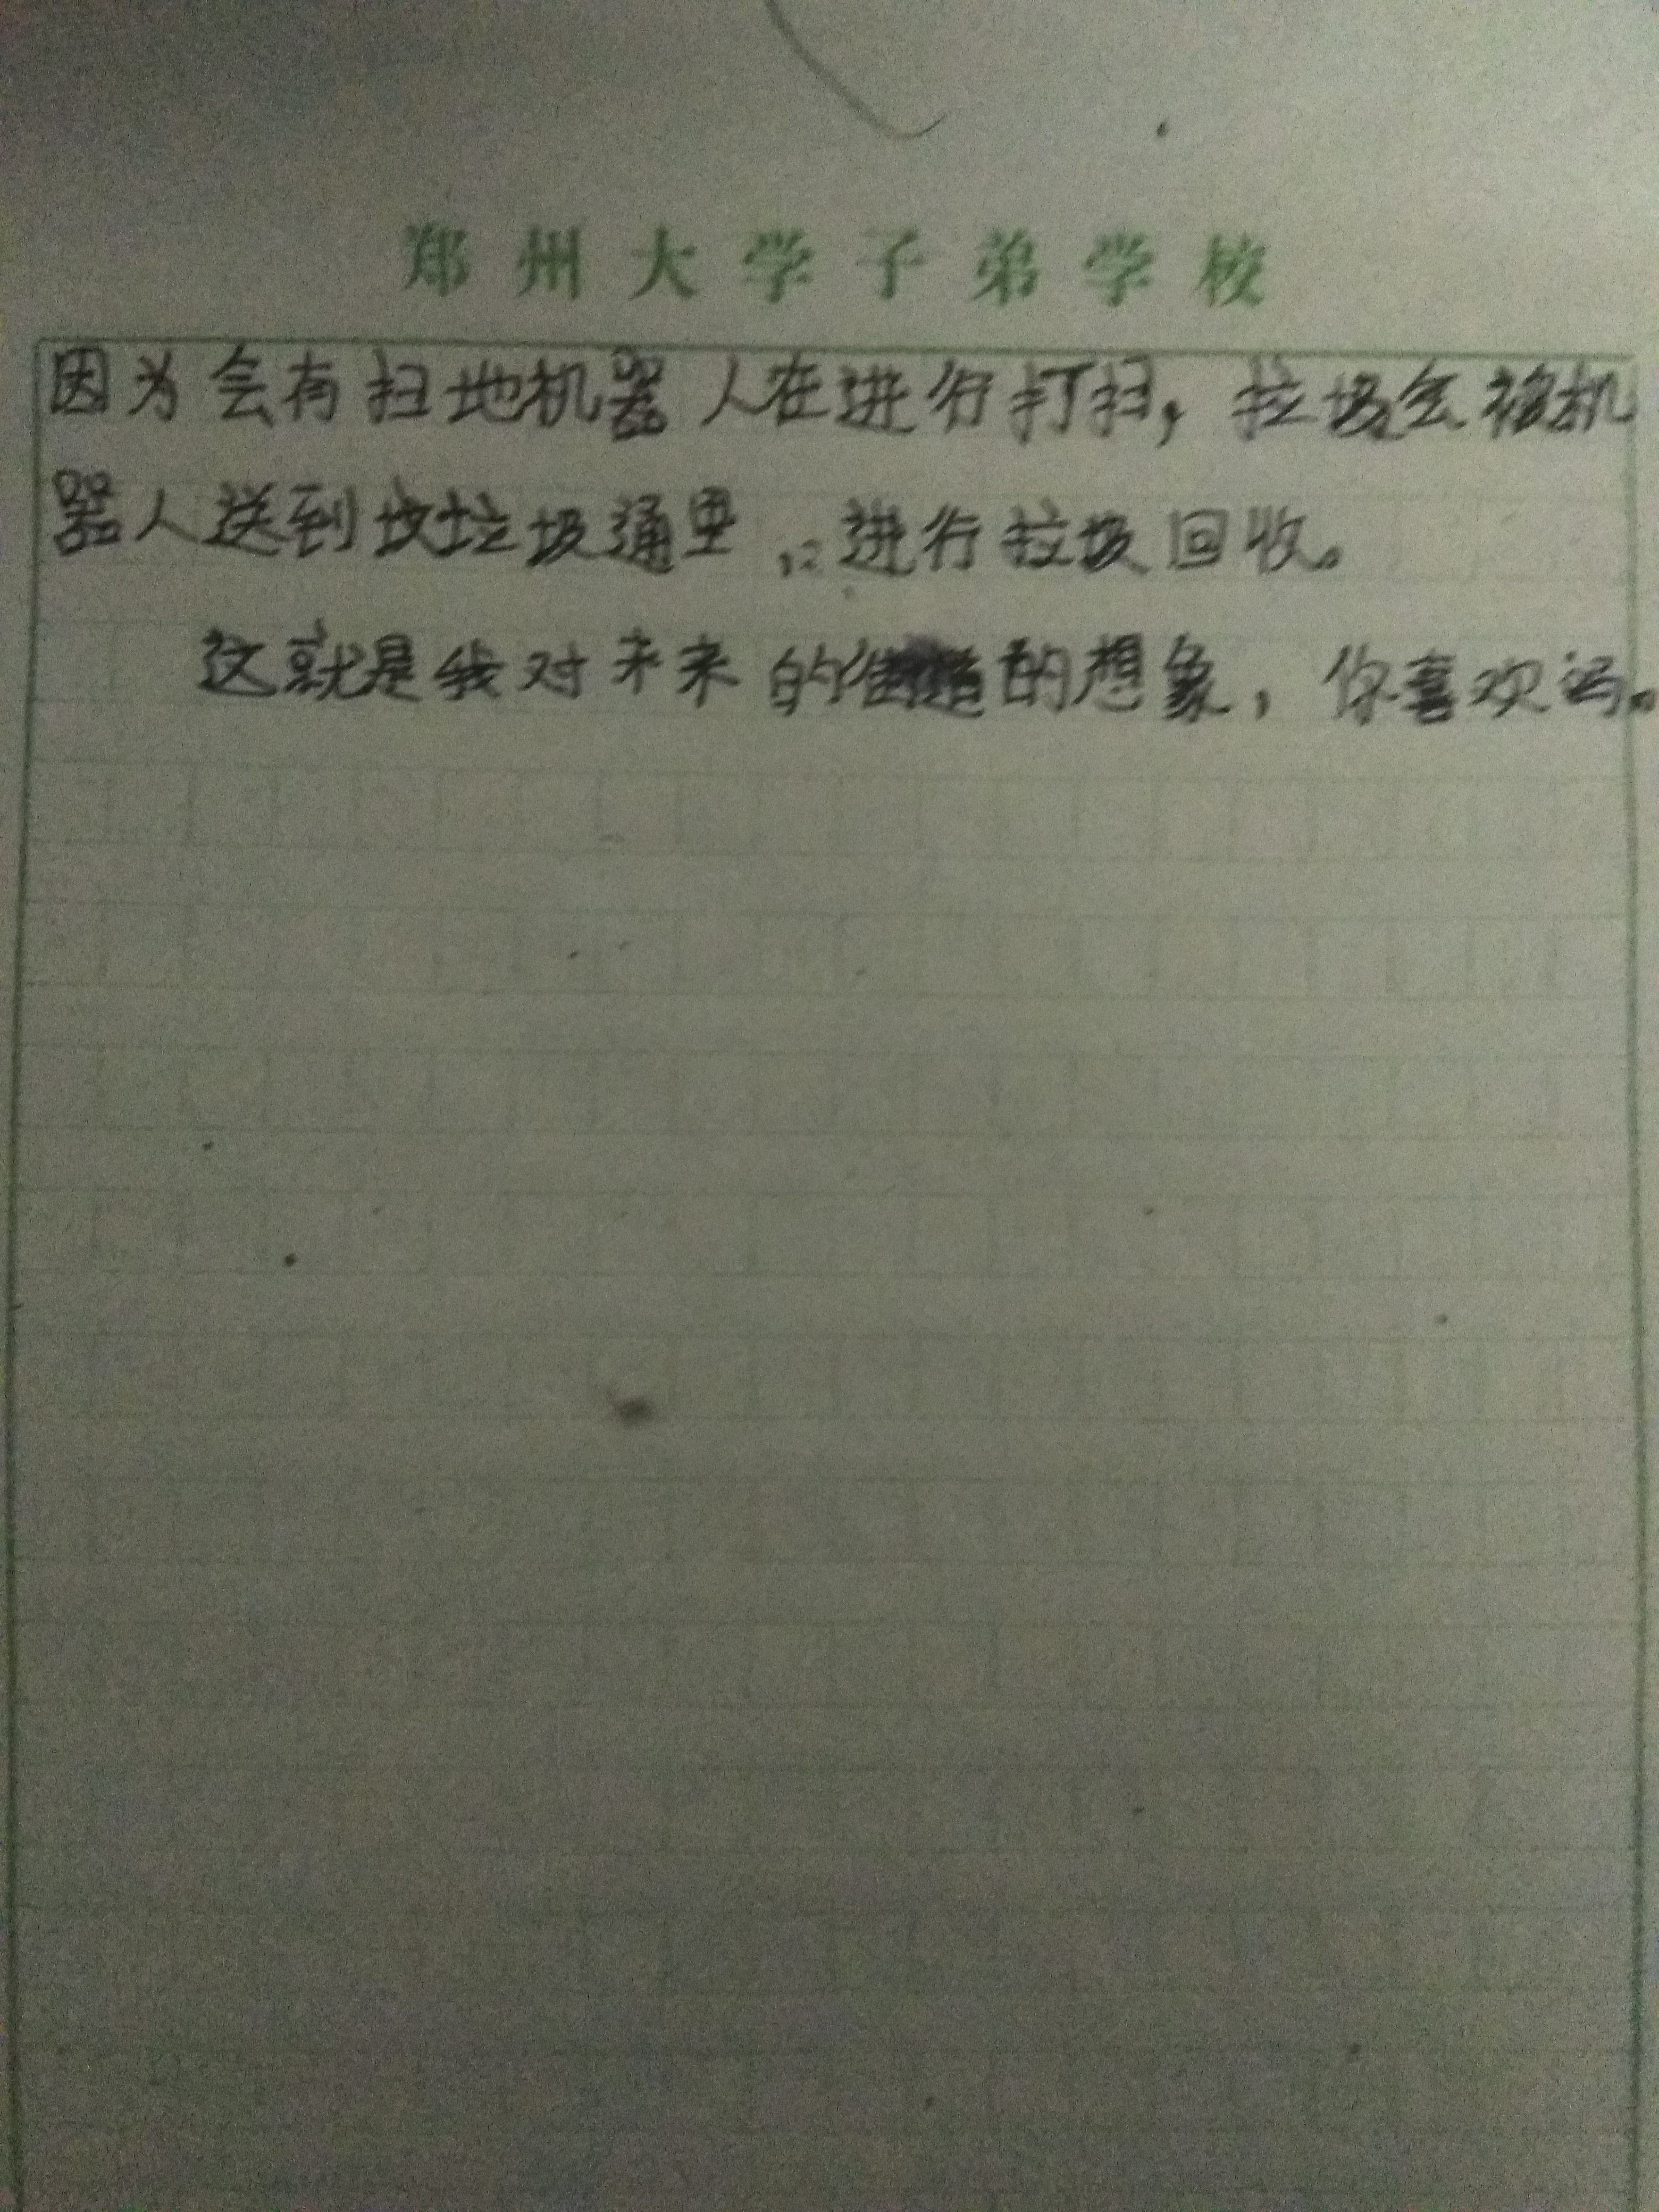 郑州大学子弟学校
因为会有扫地机器人在进行打扫，垃圾会被机
器人送到垃圾通里，进行垃圾回收。
这就是我对未来的的想象，你喜欢吗。